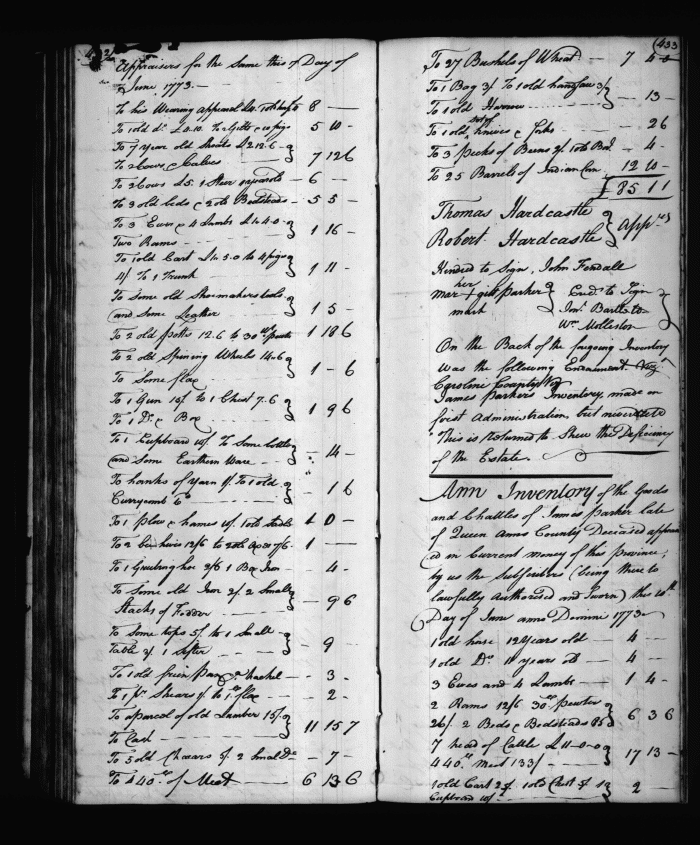 432
Appraisers for the Same this Day of
June 1773 —
To his Wearing apparel 8 —
To 1 old do. £0.10. To 10 pigs 5 10 -
To 7 year old Shoats £2.12.6
To 2 Cows & Calves 7 12 6
To 2 Cows £5. 1 Steer 6 —
To 3 old beds & 2 old Bedsteads 5 5 -
To 3 Ewes & 4 Lambs £1.4.0
Two Rams 1 16 -
To 1 old Cart £1.5.0 to 4 pigs
4/ To 1 Trunk 1 11 -
To Some old Shoemakers tools
and Some Leather 1 5 -
To 2 old potts 12.6 to 30 wt. pewter 1 18 6
To 2 old Spining Wheels 14.6
To Some flax 1 - 6
To 1 Gun 15/ to 1 Chest 7.6
To 1 Do. & Box 1 9 6
To 1 Cupboard 10/ To Some bottles
and Some Earthern Ware - 14 -
To hanks of Yarn 1/ To 1 old
Currycomb 6d - 1 6
To 1 plow & hames 10/ 1 0 -
To 2 bee hives 12/6 to 1 —
To 1 Grubing hoe 3/6 1 Box Iron - 4 -
To Some old Iron 2/. 2 Small
Stacks of Fodder - 9 6
To Some tops 5/. to 1 Small
Table 3/. 1 Sifter - 9
To 1 old frying pan & hackel - 3 -
To 1 pr. Shears 1/. to 1 flax - 2 -
To a parcel of old Lumber 15/
To Cash 11 15 7
To 5 old Chaears 5/. 2 Small Do. - 7 -
To 440 wt. of Meat 6 13 6
(433
To 27 Bushels of Wheat 7 4
To 1 Bag 3/ To 1 old handsaw 3/
To 1 old Harrow - 13 -
To 1 old set of knives & forks - 2 6
To 3 pecks of Beans 2/. 1 old - 4 -
To 25 Barrels of Indian Corn 12 10 -
£ 85 1 1
Thomas Hardcastle
Robert Hardcastle } Apprs
Kinded to Sign, John Fendall
her
Mar + gitt Parker } Cred. to Sign
mark Jno. Bartlett
Wm. Molleston
On the Back of the foregoing Inventory
was the following Endorsement. Viz.
Caroline County
James Parkers Inventory, made on
first Administration, but
This is returned to Shew the Deficiency
of the Estate.
Ann Inventory of the Goods
and Chattles of James Parker late
of Queen Anns County Deceased apprais
ed in Current money of this Province,
by us the Subscribers (being there to
lawfully Authorised and Sworn) this 10th
Day of June anno Domini 1773
1 old horse 12 Years old 4 —
1 old Do. 11 years old 4 —
3 Ewes and 4 Lambs 1 4 -
2 Rams 12/6 30 wt. pewter
26/. 2 Beds & Bedsteads 85/ 6 3 6
7 head of Cattle £11.0.0
440 wt. Meat 133/ 17 13 -
1 old Cart 25/. 1 old Chest 5/
Cupboard 10/ 2 -